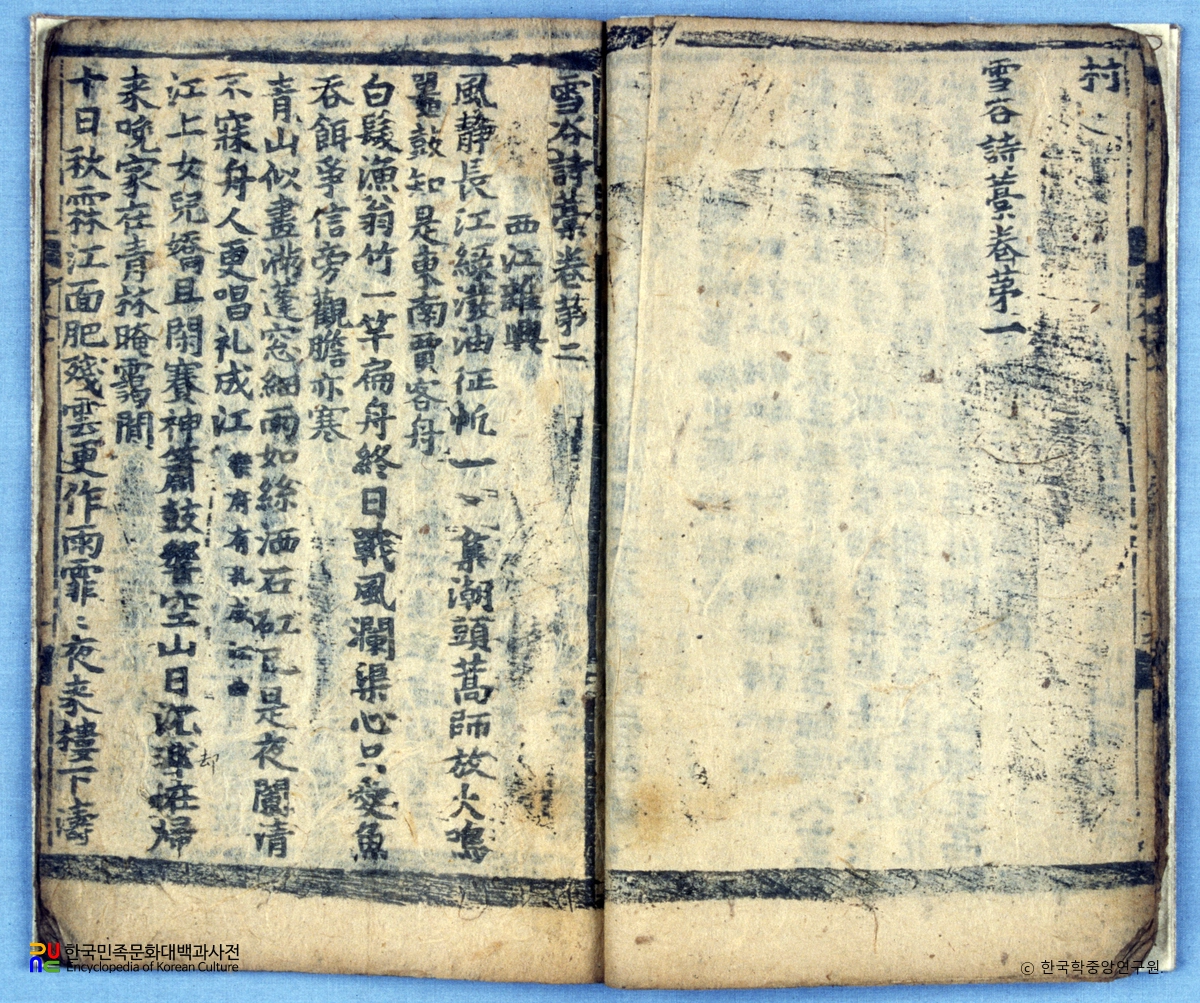 村
雪谷詩藁卷第一
雪谷詩藁卷第二
西江雜興
風静長江綠潑油征帆一〻集潮頭蒿師放火鳴
鼉鼓知是東南賈客舟
白髮漁翁竹一竿扁舟終日戰風瀾渠心只愛魚
吞餌爭信旁觀膽亦寒
青山似畫蓬窓細雨如絲洒石矼是夜闌清
不寐舟人更唱礼成江 樂府有礼成江曲
江上女兒嬌且閑賽神簫鼓響空山日沉歸
却
来晚家在青林晻靄間
十日秋霖江面肥殘雲更作雨霏〻夜来樓下濤
한국민족문화대백과사전
Encyclopedia of Korean Culture
ⓒ 한국학중앙연구원